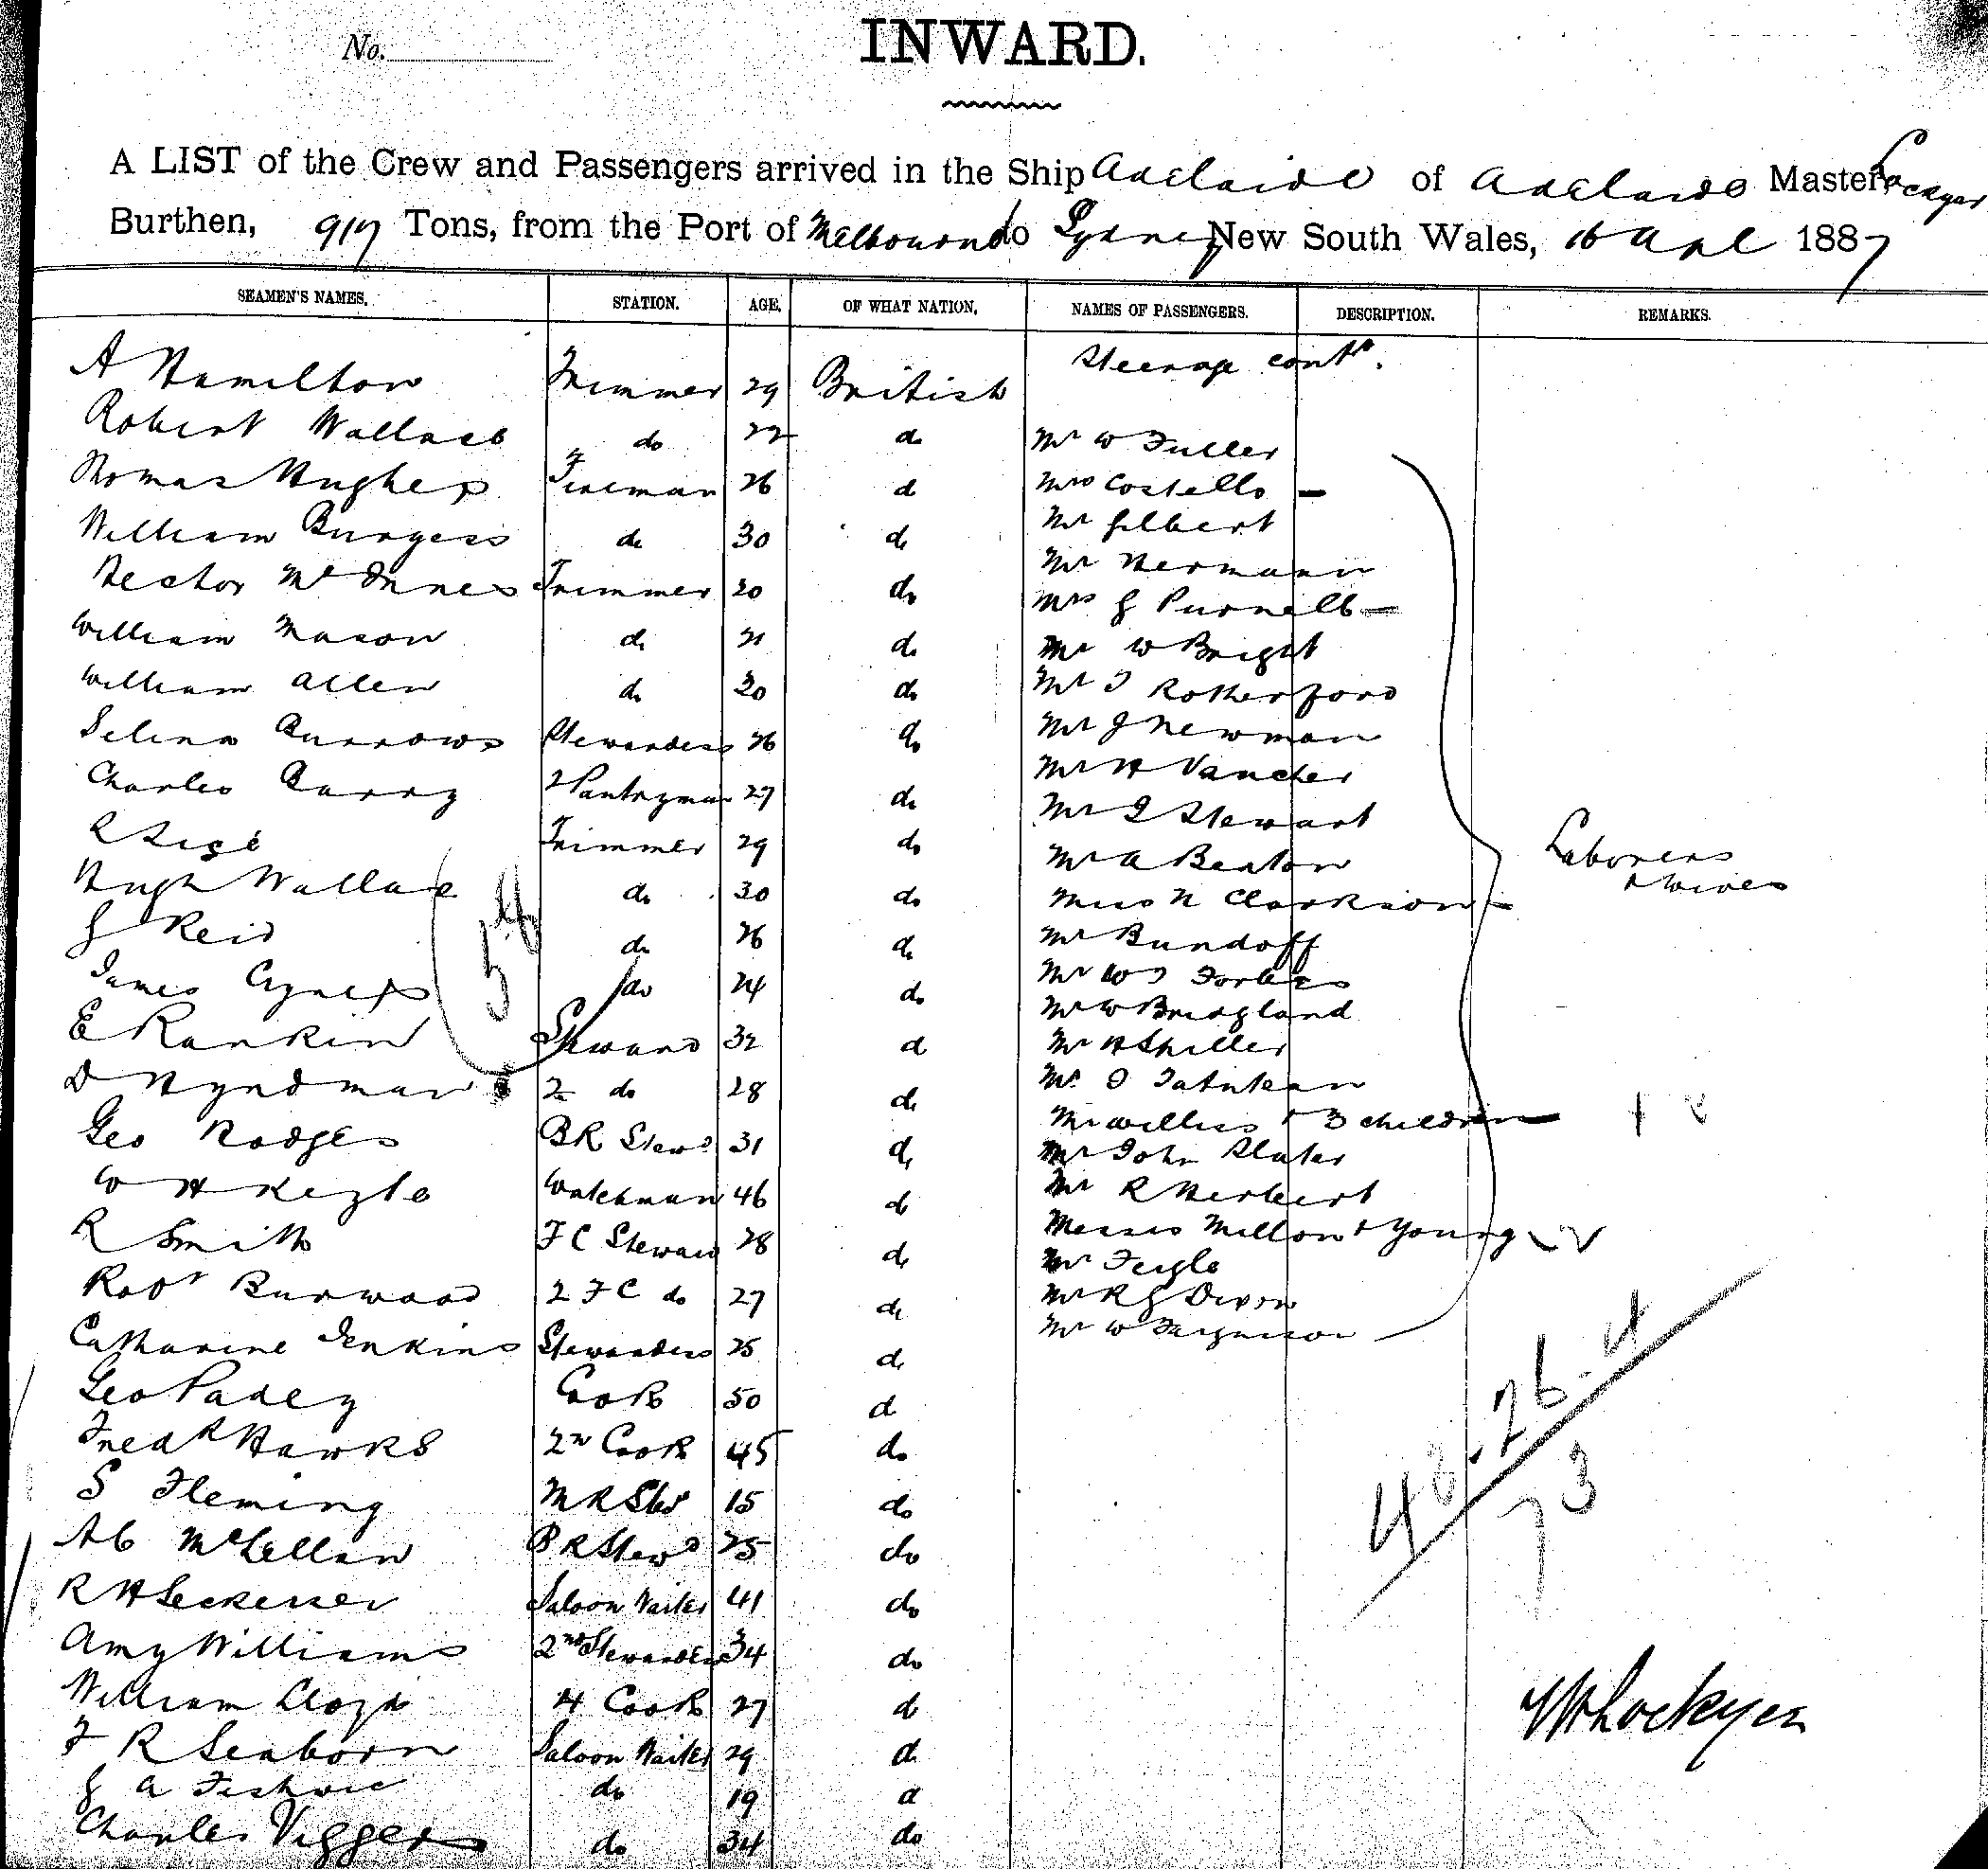 No.
INWARD.
A LIST of the Crew and Passengers arrived in the Ship Adelaide of Adelaide Master Lockyer
Burthen, 917 Tons, from the Port of Melbourne to Sydney New South Wales, 16 Apl 1887
SEAMEN'S NAMES. STATION. AGE. OF WHAT NATION. NAMES OF PASSENGERS. DESCRIPTION. REMARKS.
Steerage contd.
A Hamilton Trimmer 29 British
Robert Wallace do 22 do Mr W Fuller
Thomas Hughes Fireman 26 do Mrs Costello -
William Burgess do 30 do Mr Gilbert
Hector McInnes Trimmer 20 do Mr Hermann
Mrs G Purnell -
William Mason do 21 do Mr W Bright
William Allen do 30 do Mr T Rotherford
Selina Burrows Stewardess 26 do Mr J Newman
Mr H
Charles Barry 2 Pantryman 27 do Mr J Stewart
R Trimmer 29 do Mr A Beaton
Laborers
& wives
Hugh Wallace do 30 do Miss N Clarkson -
J Reid do 26 do Mr Bundoff
54
James do 24 do Mr W J Forbes
Mr W Bridgland
E Rankin Steward 32 do Mr H Shiller
D Hyndman 2 do 28 do Mr J
Mr Willis & 3 children
Geo Hodges BR Stewd 31 do Mr John Slater
W H Keyte Watchman 46 do Mr R Herbert
R Smith FC Steward 28 do Messrs Mellon & Young
Mr
Robt Burwood 2 FC do 27 do Mr R G Dixon
Catharine Jenkins Stewardess 25 do Mr W Ferguson
Geo Padey Cook 50 do
Fredk Hawks 2nd Cook 45 do
S Fleming MR Std 15 do
43.26.4
73
Ab McLellan BR Stewd 25 do
R H Saloon Waiter 41 do
Amy Williams 2nd Stewardess 34 do
William Lloyd 4 Cook 27 do
W Lockyer
F R Seaborn Saloon Waiter 29 do
G A Fishwic do 19 do
Charles Viggers do 34 do